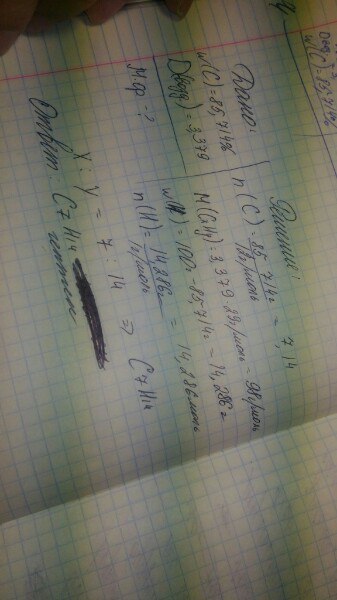 Дано:
w(C) = 85,714%
D(возд) = 3,379
Мф - ?
Решение:
n(C) = 85,714г / 12г/моль = 7,14
M(CxHy) = 3,379 · 29г/моль = 98г/моль
w(H) = 100% - 85,714г = 14,286г
n(H) = 14,286г / 1г/моль = 14,286моль
X : Y = 7 : 14 ⇒ C7H14
Ответ: C7H14
гептен